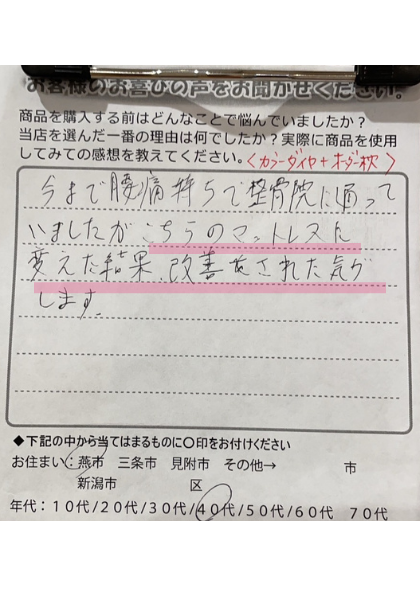 お客様のお喜びの声をお聞かせください。
商品を購入する前はどんなことで悩んでいましたか？
当店を選んだ一番の理由は何でしたか？実際に商品を使用
してみての感想を教えてください。〈カラーダイヤ＋オーダー枕〉
今まで腰痛持ちで整骨院に通って
いましたがこちらのマットレスに
変えた結果、改善をされた気が
します。
◆下記の中から当てはまるものに○印をお付けください
お住まい：燕市 三条市 見附市 その他→ 市
新潟市 区
年代：１０代/２０代/３０代/４０代/５０代/６０代 ７０代